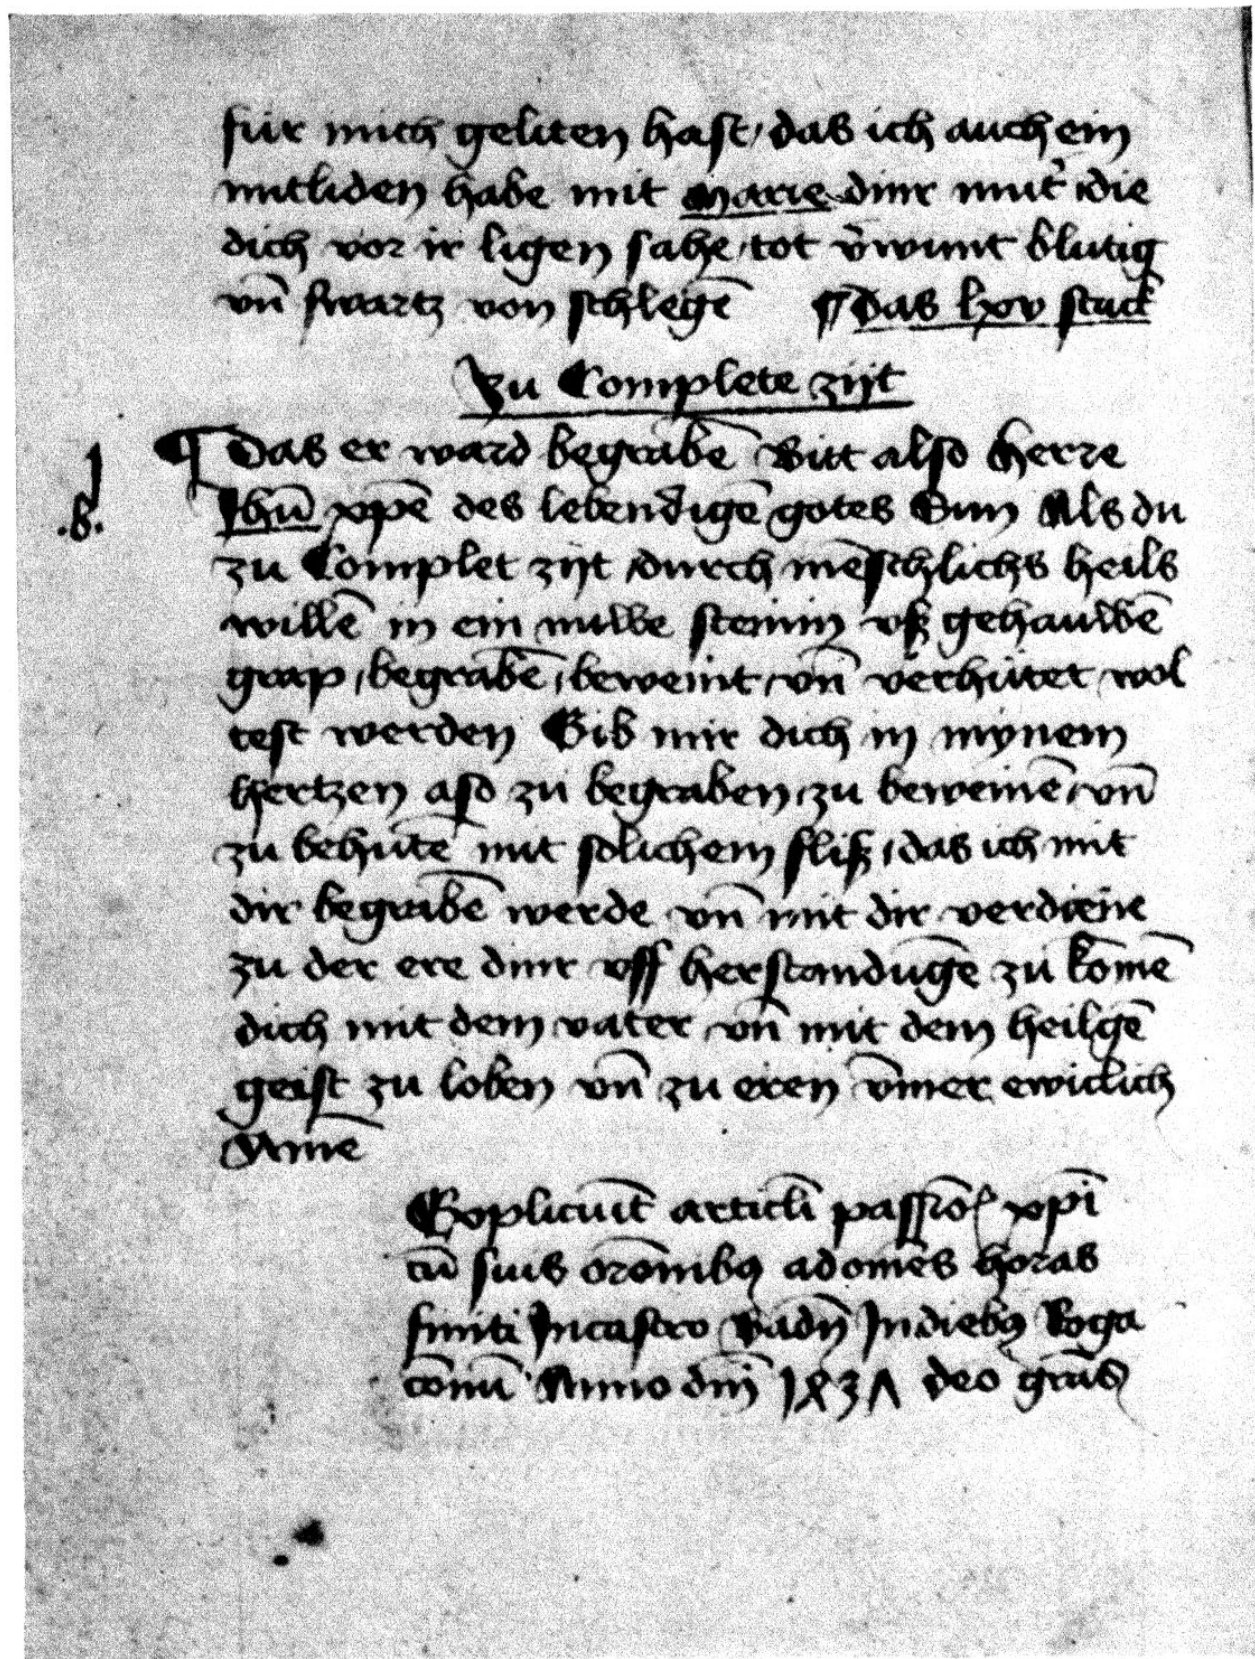 für mich geliten hast / das ich auch ein
mitliden habe mit Marie diner mut̃ / die
dich vor ir ligen sahe / tot v̄wunt blutig
vn̄ swartz von schlegē ¶ Das lxv stuck
Zu Complete zijt
¶ Das er ward begrabē Bitt also herre
.b. Jhū xp̄e des lebendigē gotes Sun Als du
zu Complet zijt / durch mēschlichs heils
willē in ein nuwe steinin vß gehauwē
grap / begrabē / beweint / vn̄ verhütet / wol
test werden Gib mir dich in mynem
hertzen also zu begraben / zu beweinē / vn̄
zu behütē mit solichem fliß / das ich mit
dir begrabē werde vn̄ mit dir verdiene
zu der ere diner vff herstandūgē zu komē
dich mit dem vater vn̄ mit dem heilgē
geist zu loben vn̄ zu eren ȳmer ewiclich
Amē
Expliciūt articli passiōs xp̄i
cū suis orōnibꝫ ad om̄es horas
finiti In castro Badn̄ In diebꝫ Roga
conū Anno dn̄i 1437 deo gr̄as